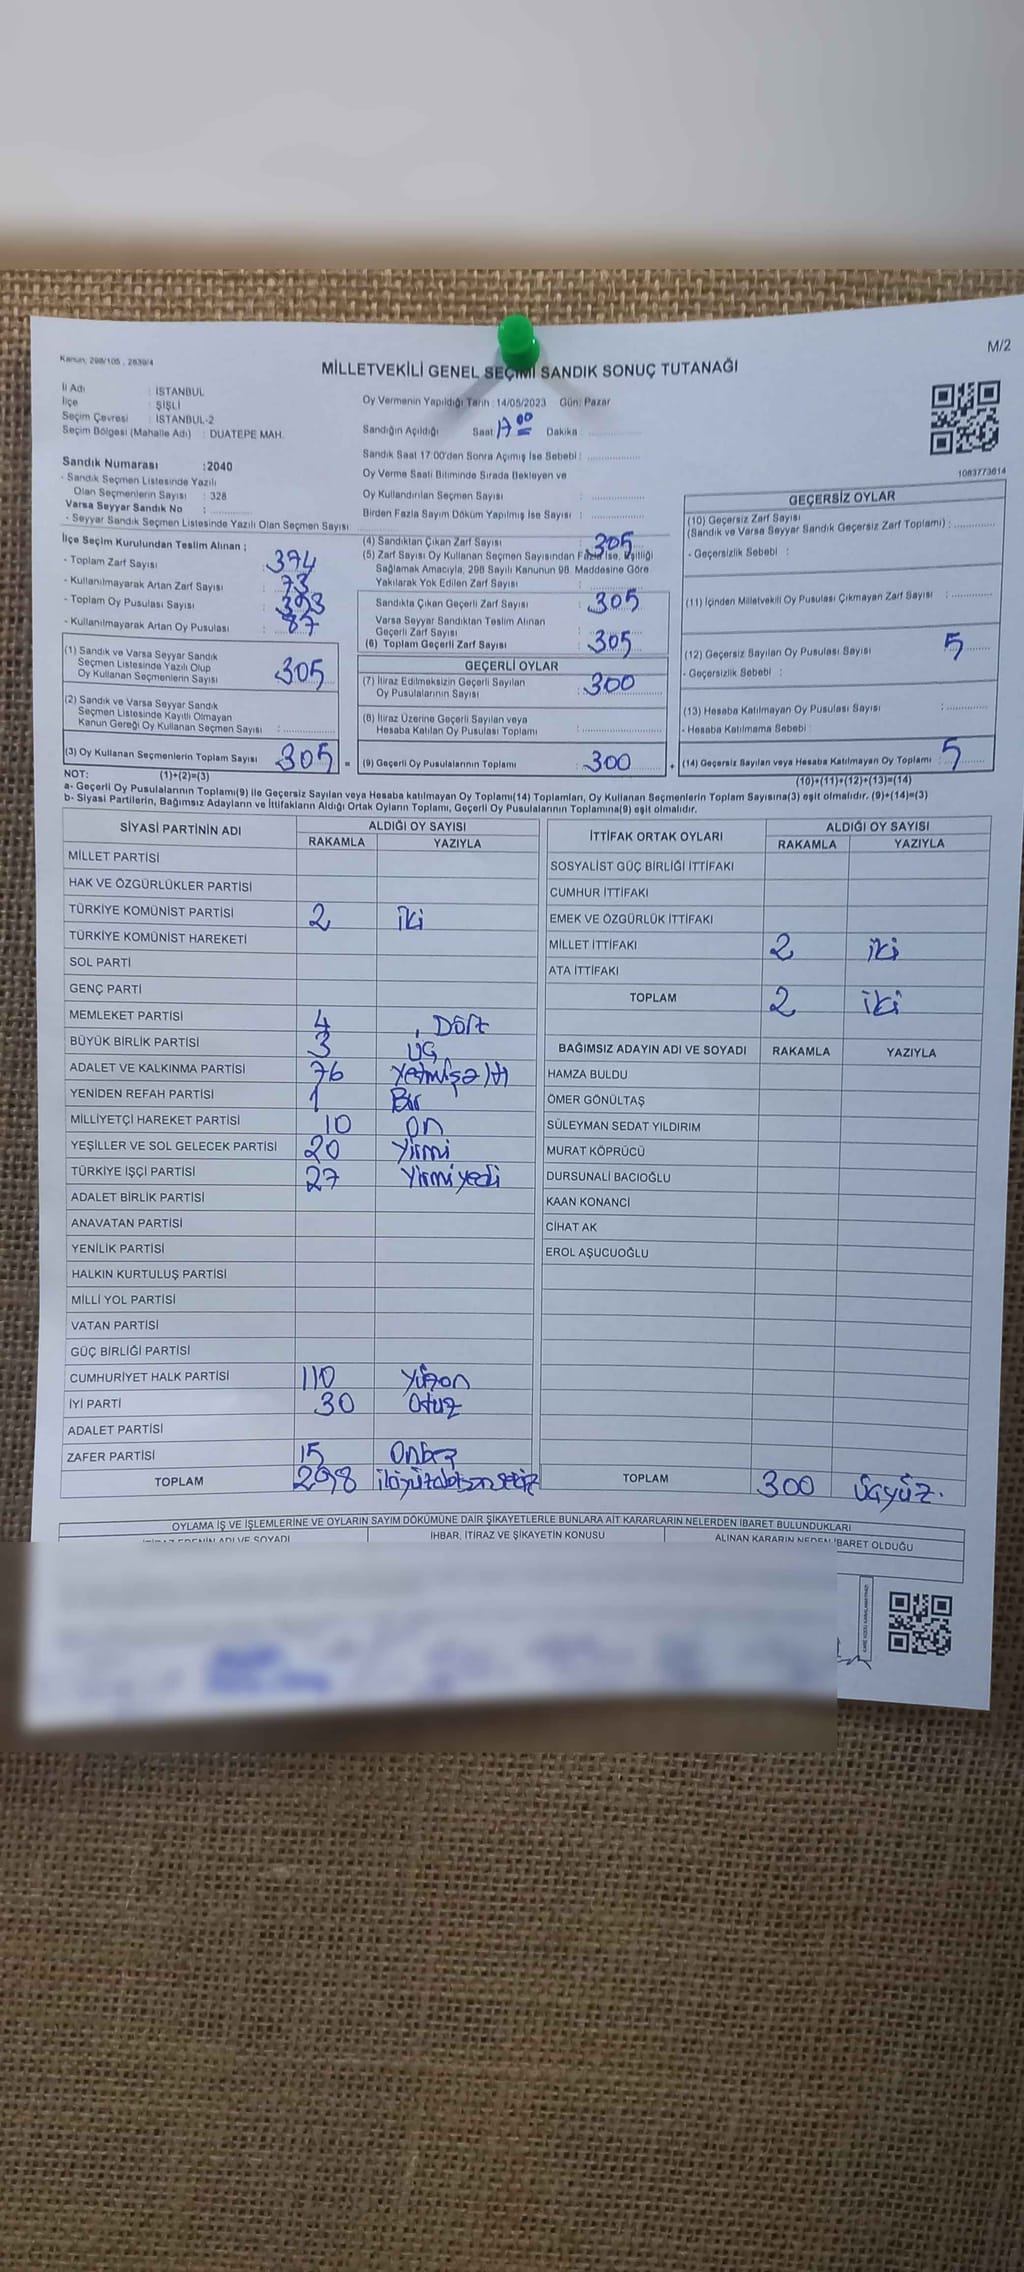 M/2
Kanun: 298/105 , 2839/4
MİLLETVEKİLİ GENEL SEÇİMİ SANDIK SONUÇ TUTANAĞI
İl Adı : İSTANBUL
İlçe : ŞİŞLİ
Seçim Çevresi : İSTANBUL-2
Seçim Bölgesi (Mahalle Adı) : DUATEPE MAH.
Oy Vermenin Yapıldığı Tarih : 14/05/2023 Gün: Pazar
Sandığın Açıldığı Saat 17 00 Dakika
Sandık Saat 17:00'den Sonra Açılmış İse Sebebi :
Oy Verme Saati Bitiminde Sırada Bekleyen ve
Oy Kullandırılan Seçmen Sayısı :
Birden Fazla Sayım Döküm Yapılmış İse Sayısı :
1083773614
Sandık Numarası : 2040
- Sandık Seçmen Listesinde Yazılı
Olan Seçmenlerin Sayısı : 328
Varsa Seyyar Sandık No :
- Seyyar Sandık Seçmen Listesinde Yazılı Olan Seçmen Sayısı
İlçe Seçim Kurulundan Teslim Alınan ;
- Toplam Zarf Sayısı : 394
- Kullanılmayarak Artan Zarf Sayısı : 73
- Toplam Oy Pusulası Sayısı : 393
- Kullanılmayarak Artan Oy Pusulası : 87
(1) Sandık ve Varsa Seyyar Sandık
Seçmen Listesinde Yazılı Olup
Oy Kullanan Seçmenlerin Sayısı : 305
(2) Sandık ve Varsa Seyyar Sandık
Seçmen Listesinde Kayıtlı Olmayan
Kanun Gereği Oy Kullanan Seçmen Sayısı :
(3) Oy Kullanan Seçmenlerin Toplam Sayısı : 305 =
(4) Sandıktan Çıkan Zarf Sayısı : 305
(5) Zarf Sayısı Oy Kullanan Seçmen Sayısından Fazla İse, Eşitliği
Sağlamak Amacıyla, 298 Sayılı Kanunun 98. Maddesine Göre
Yakılarak Yok Edilen Zarf Sayısı :
Sandıkta Çıkan Geçerli Zarf Sayısı : 305
Varsa Seyyar Sandıktan Teslim Alınan
Geçerli Zarf Sayısı :
(6) Toplam Geçerli Zarf Sayısı : 305
GEÇERLİ OYLAR
(7) İtiraz Edilmeksizin Geçerli Sayılan
Oy Pusulalarının Sayısı : 300
(8) İtiraz Üzerine Geçerli Sayılan veya
Hesaba Katılan Oy Pusulası Toplamı :
(9) Geçerli Oy Pusulalarının Toplamı : 300 +
GEÇERSİZ OYLAR
(10) Geçersiz Zarf Sayısı
(Sandık ve Varsa Seyyar Sandık Geçersiz Zarf Toplamı) :
- Geçersizlik Sebebi :
(11) İçinden Milletvekili Oy Pusulası Çıkmayan Zarf Sayısı :
(12) Geçersiz Sayılan Oy Pusulası Sayısı 5
- Geçersizlik Sebebi :
(13) Hesaba Katılmayan Oy Pusulası Sayısı :
- Hesaba Katılmama Sebebi :
(14) Geçersiz Sayılan veya Hesaba Katılmayan Oy Toplamı : 5
NOT: (1)+(2)=(3)
(10)+(11)+(12)+(13)=(14)
a- Geçerli Oy Pusulalarının Toplamı(9) ile Geçersiz Sayılan veya Hesaba katılmayan Oy Toplamı(14) Toplamları, Oy Kullanan Seçmenlerin Toplam Sayısına(3) eşit olmalıdır. (9)+(14)=(3)
b- Siyasi Partilerin, Bağımsız Adayların ve İttifakların Aldığı Ortak Oyların Toplamı, Geçerli Oy Pusulalarının Toplamına(9) eşit olmalıdır.
SİYASİ PARTİNİN ADI ALDIĞI OY SAYISI
RAKAMLA YAZIYLA
MİLLET PARTİSİ
HAK VE ÖZGÜRLÜKLER PARTİSİ
TÜRKİYE KOMÜNİST PARTİSİ 2 iki
TÜRKİYE KOMÜNİST HAREKETİ
SOL PARTİ
GENÇ PARTİ
MEMLEKET PARTİSİ 4 Dört
BÜYÜK BİRLİK PARTİSİ 3 üç
ADALET VE KALKINMA PARTİSİ 76 Yetmişaltı
YENİDEN REFAH PARTİSİ 1 Bir
MİLLİYETÇİ HAREKET PARTİSİ 10 on
YEŞİLLER VE SOL GELECEK PARTİSİ 20 Yirmi
TÜRKİYE İŞÇİ PARTİSİ 27 Yirmiyedi
ADALET BİRLİK PARTİSİ
ANAVATAN PARTİSİ
YENİLİK PARTİSİ
HALKIN KURTULUŞ PARTİSİ
MİLLİ YOL PARTİSİ
VATAN PARTİSİ
GÜÇ BİRLİĞİ PARTİSİ
CUMHURİYET HALK PARTİSİ 110 Yüzon
İYİ PARTİ 30 Otuz
ADALET PARTİSİ
ZAFER PARTİSİ 15 Onbeş
TOPLAM 298 ikiyüzdoksansekiz
İTTİFAK ORTAK OYLARI ALDIĞI OY SAYISI
RAKAMLA YAZIYLA
SOSYALİST GÜÇ BİRLİĞİ İTTİFAKI
CUMHUR İTTİFAKI
EMEK VE ÖZGÜRLÜK İTTİFAKI
MİLLET İTTİFAKI 2 iki
ATA İTTİFAKI
TOPLAM 2 iki
BAĞIMSIZ ADAYIN ADI VE SOYADI RAKAMLA YAZIYLA
HAMZA BULDU
ÖMER GÖNÜLTAŞ
SÜLEYMAN SEDAT YILDIRIM
MURAT KÖPRÜCÜ
DURSUNALİ BACIOĞLU
KAAN KONANCİ
CİHAT AK
EROL AŞUCUOĞLU
TOPLAM 300 üçyüz.
OYLAMA İŞ VE İŞLEMLERİNE VE OYLARIN SAYIM DÖKÜMÜNE DAİR ŞİKAYETLERLE BUNLARA AİT KARARLARIN NELERDEN İBARET BULUNDUKLARI
ADI VE SOYADI İHBAR, İTİRAZ VE ŞİKAYETİN KONUSU ALINAN KARARIN NEDEN İBARET OLDUĞU